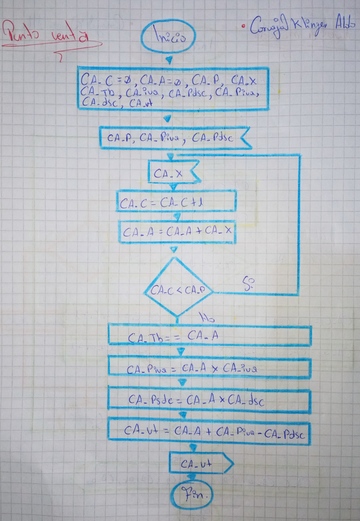 Punto venta
• Carvajal Klinger Aldo
Inicio
CA_C = ø, CA_A = ø, CA_P, CA_X
CA_Tb, CA_iva, CA_Pdsc, CA_Piva,
CA_dsc, CA_vt
CA_P, CA_Piva, CA_Pdsc
CA_X
CA_C = CA_C + 1
CA_A = CA_A + CA_X
CA_C < CA_P
Si
No
CA_Tb = CA_A
CA_Piva = CA_A x CA_iva
CA_Psdc = CA_A x CA_dsc
CA_vt = CA_A + CA_Piva - CA_Pdsc
CA_vt
Fin.